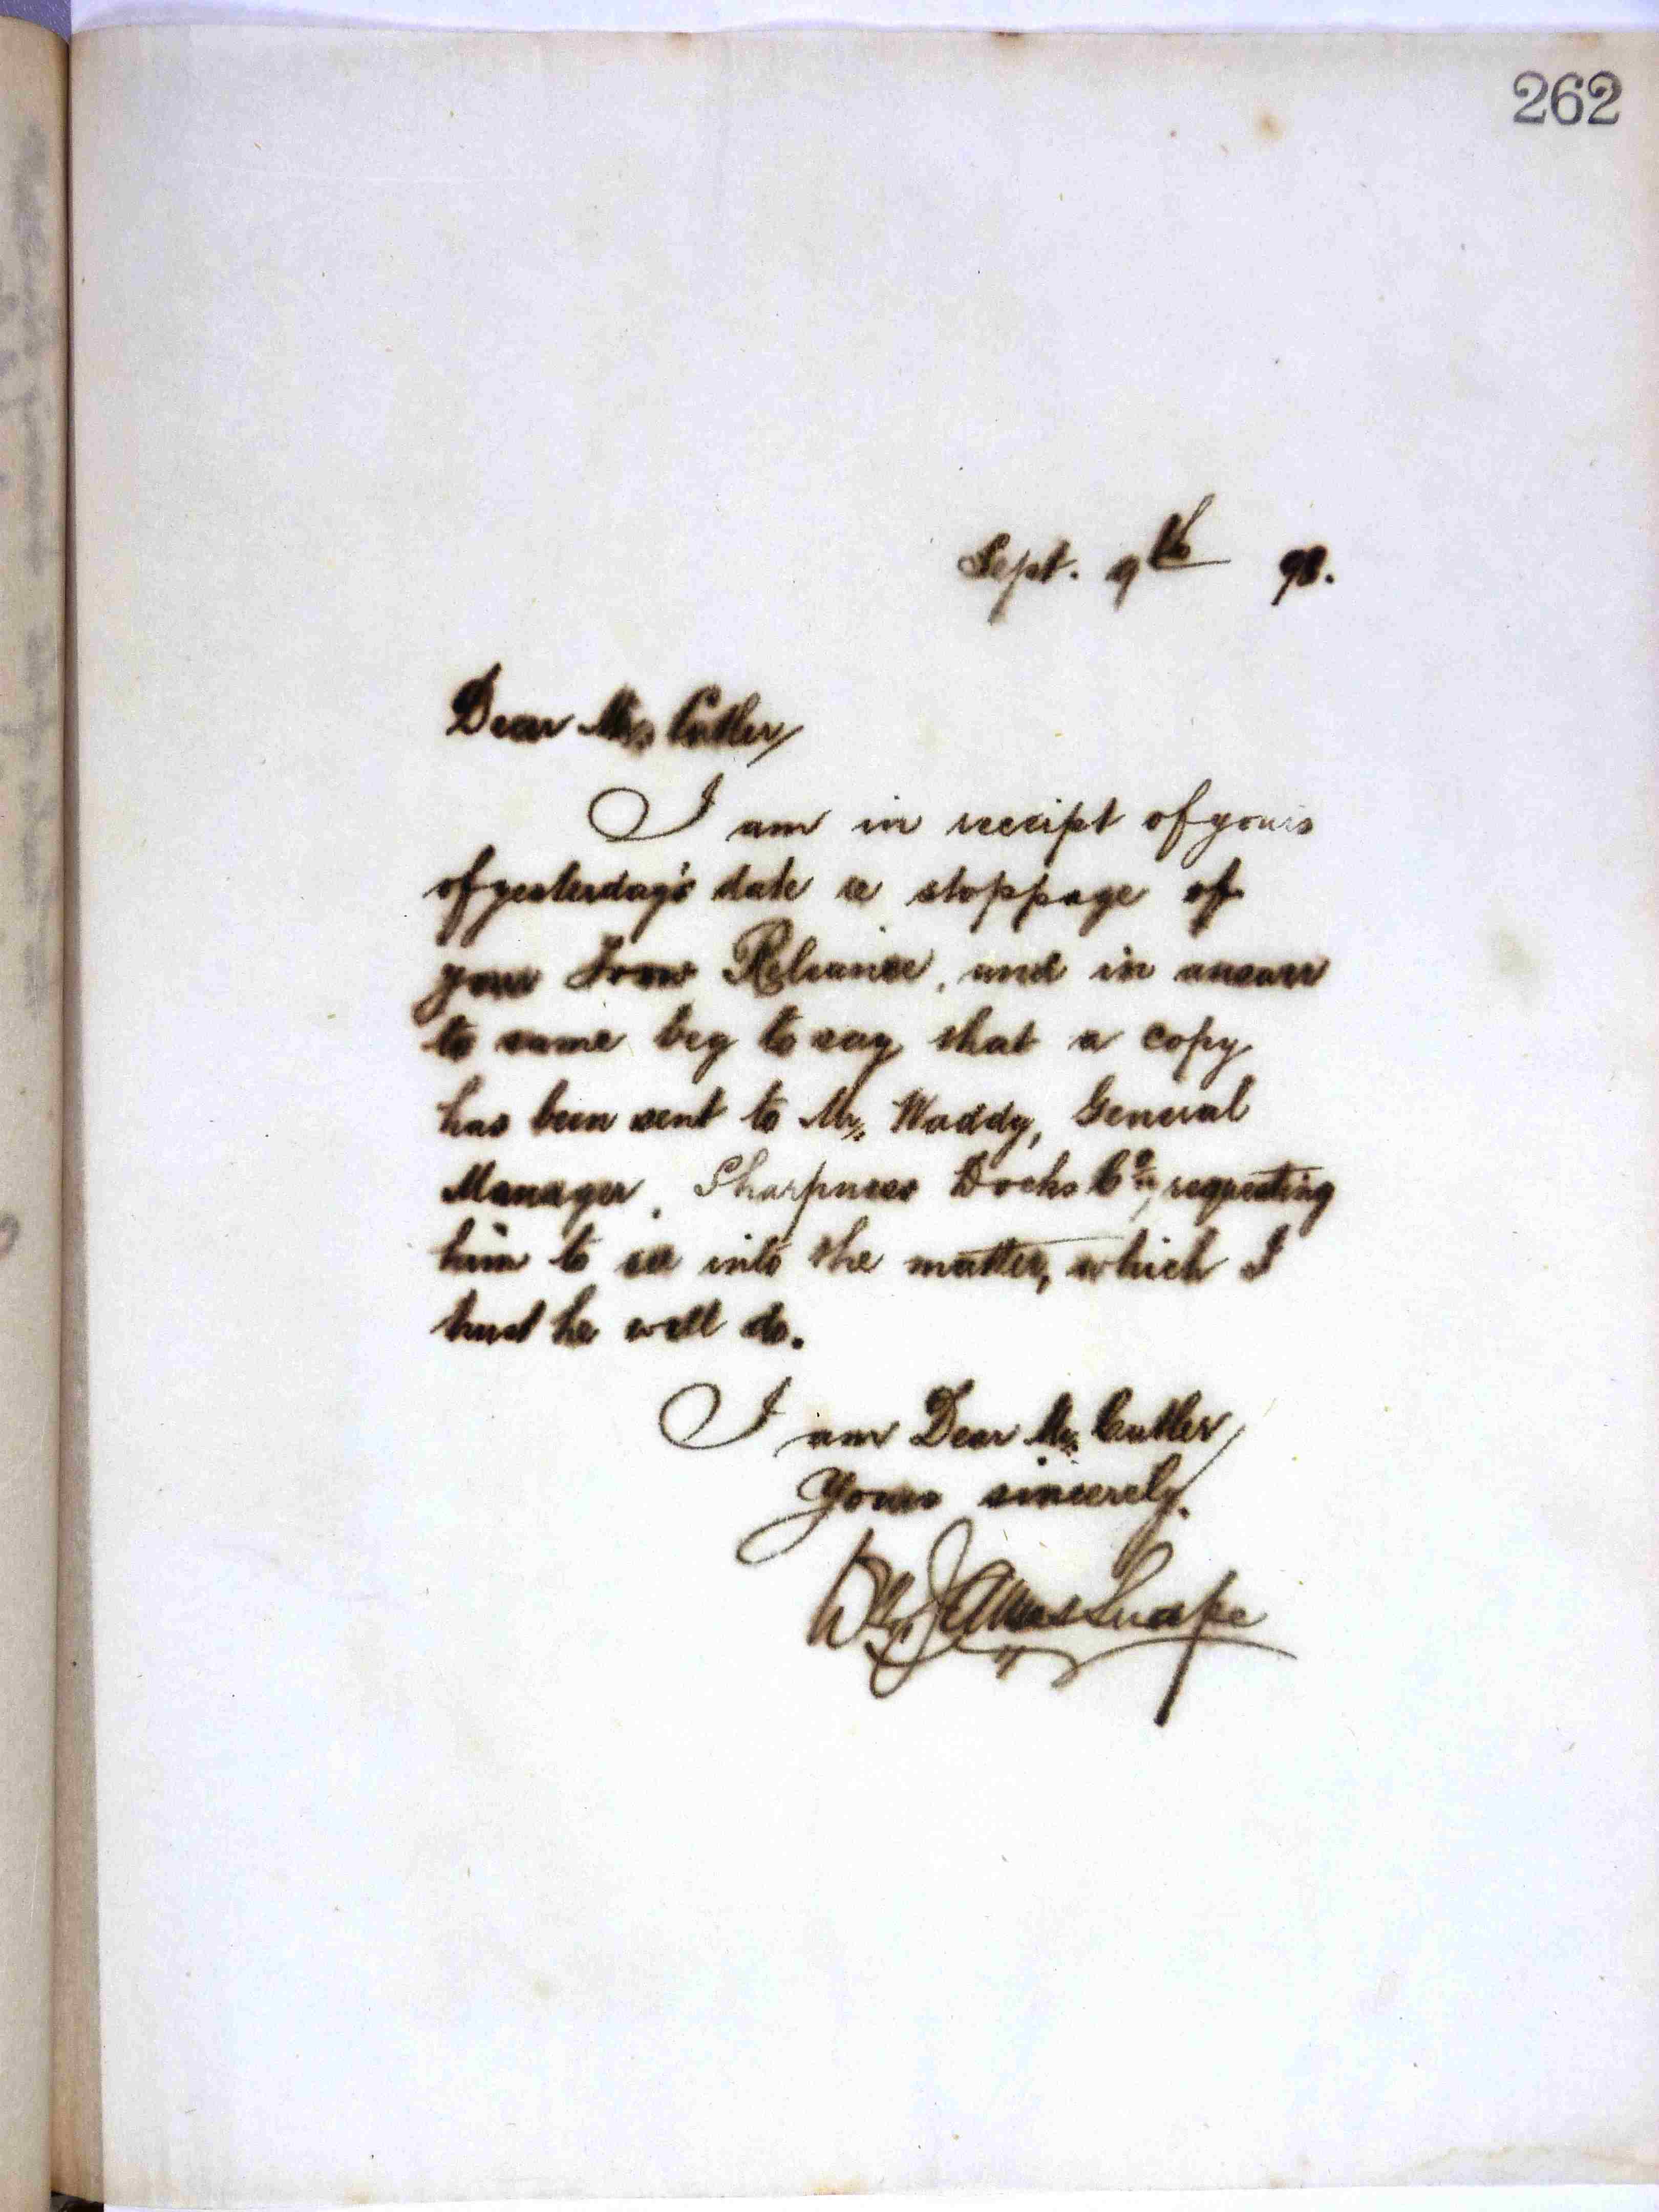 262
Sept. 9th 98.
Dear Mr. Cutler,
I am in receipt of yours
of yesterday's date re stoppage of
your Trow Reliance, and in answer
to same beg to say that a copy
has been sent to Mr. Waddy, General
Manager, Sharpness Docks Co., requesting
him to see into the matter, which I
trust he will do.
I am Dear Mr. Cutler,
Yours sincerely.
Wm James Snape